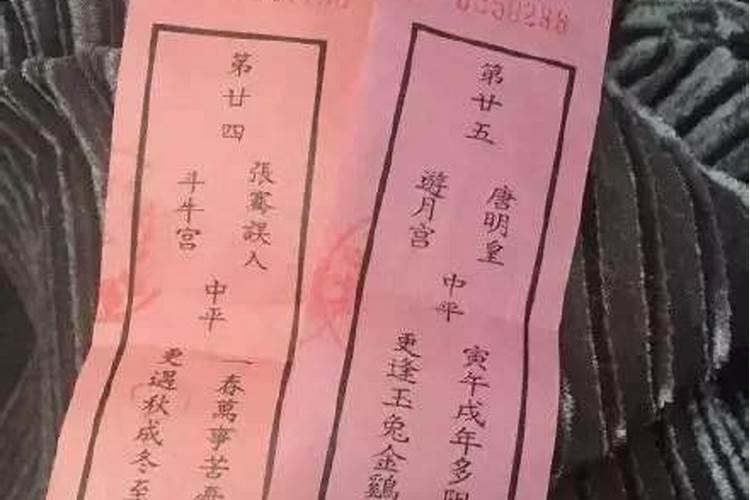 第廿四
張騫誤入
斗牛宮
中平
一春萬事苦
更遇秋成冬至
第廿五
唐明皇
遊月宮
中平
寅午戌年多阻
更逢玉兔金鷄